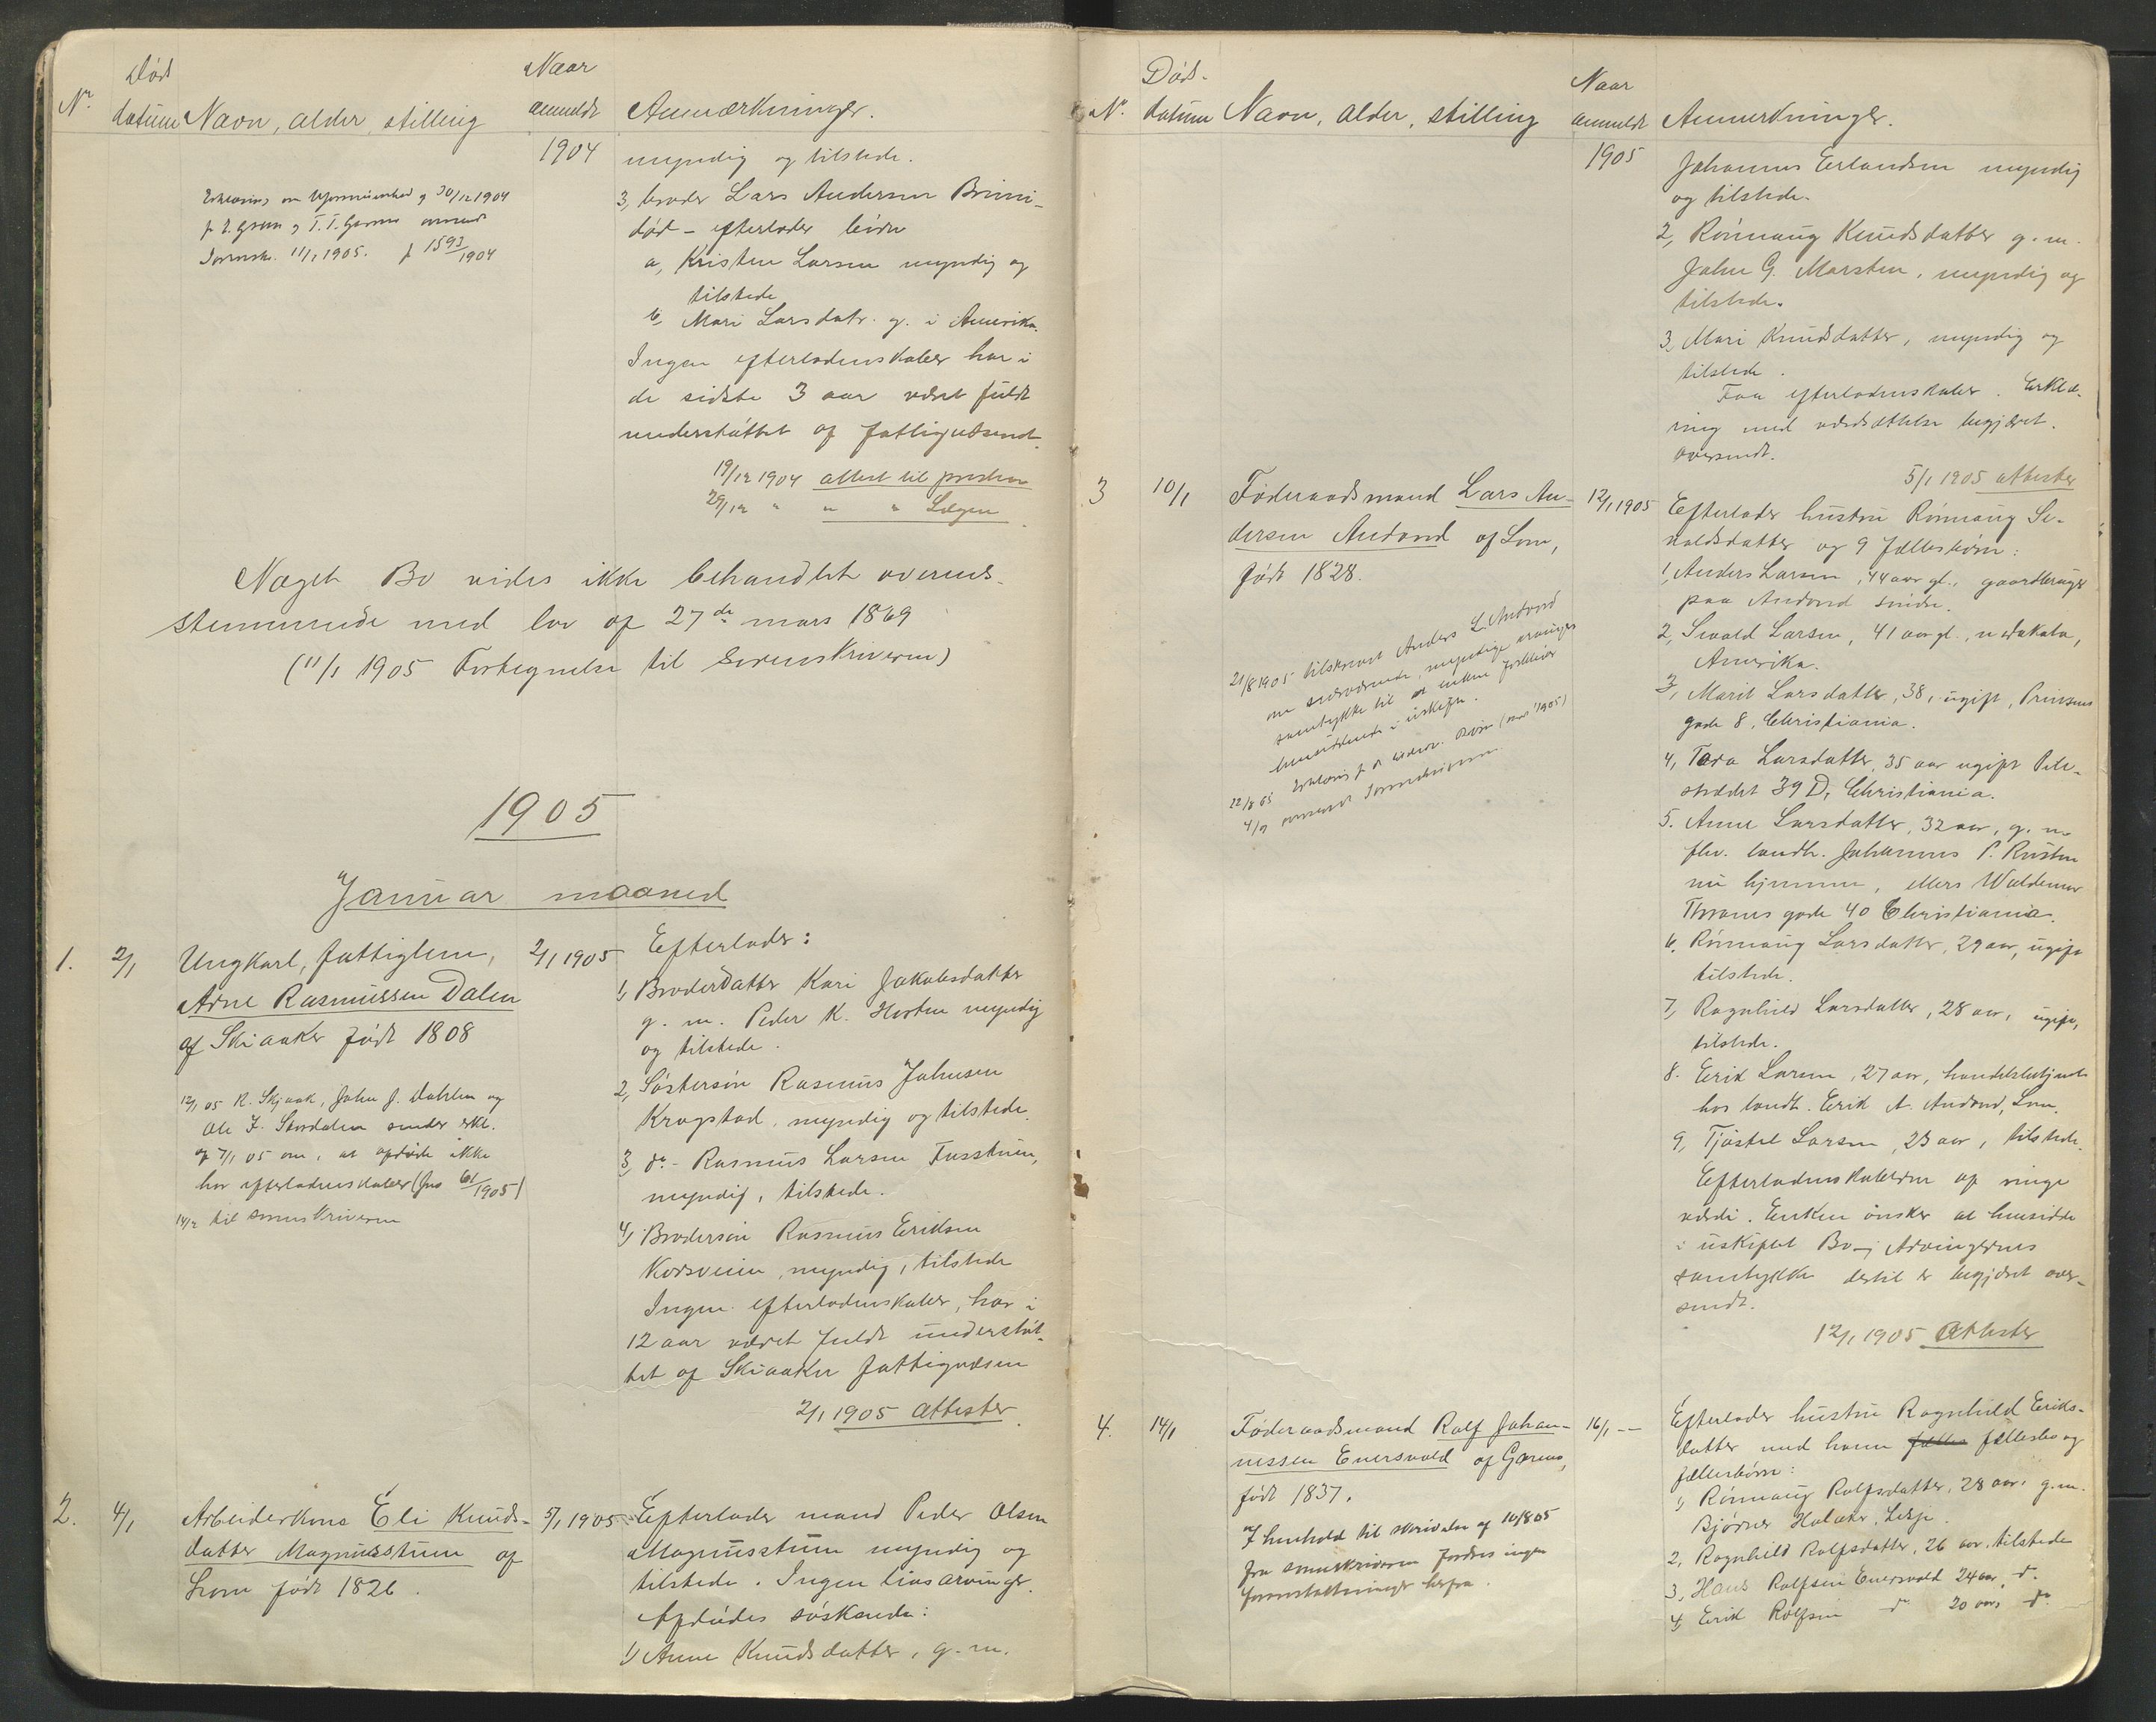 Nr.
Død
datum
Navn, alder, stilling
Naar
anmeldt
Anmærkninger.
1904
myndig og tilstede.
3, broder Lars Andersen Brimi-
død - efterlader børn
a, Kristen Larsen myndig og
tilstede
b, Mari Larsdatr. g. i Amerika.
Ingen efterladenskaber har i
de sidste 3 aar været fuldt
understøttet af fattigvæsenet.
19/12 1904 attest til presten
29/12 " " " Lægen
Erklæring om Uformuenhed af 30/12 1904
11/1 1905. 1593/1904
Noget Bo vides ikke behandlet overens-
stemmende med lov af 27de mars 1869
(11/1 1905 Fortegnelse til Sorenskriveren)
1905
Januar maaned
1. 2/1
Ungkarl, fattiglem,
Arne Rasmussen Dalen
af Skiaaker født 1808
12/1 05 K. Skjaak, John J. Dahlen og
Ole J. Stordalen sender erkl.
af 7/1 05 om, at afdøde ikke
har efterladenskaber (Jns 61/1905)
14/2 til sorenskriveren
2/1 1905
Efterlader:
1, Broderdatter Kari Jakobsdatter
g. m. Peder K. myndig
og tilstede.
2, Søstersøn Rasmus Johnsen
Krogstad, myndig og tilstede.
3, do - Rasmus Larsen Fusstuen,
myndig, tilstede.
4, Brodersøn Rasmus Eriksen
Korsveien, myndig, tilstede
Ingen efterladenskaber, har i
12 aar været fuldt understøt-
tet af Skiaaker fattigvæsen
2/1 1905 Attester
2. 4/1
Arbeiderkone Eli Knuds-
datter Magnusstuen af
Lom født 1826.
5/1 1905
Efterlader mand Peder Olsen
Magnusstuen myndig og
tilstede. Ingen livsarvinger.
Afdødes søskende:
1, Anne Knudsdatter, g. m.
Nr.
Død-
datum
Navn, alder, stilling
Naar
anmeldt
Anmerkninger.
1905
Johannes Erlandsen myndig
og tilstede.
2, Rønnaug Knudsdatter g. m.
John G. Marsten, myndig og
tilstede.
3, Mari Knudsdatter, myndig og
tilstede.
Faa efterladenskaber. Erklæ-
ring med værdsættelse begjæret
oversendt.
5/1 1905 attester
3 10/1
Føderaadsmand Lars An-
dersen Andvord af Lom,
født 1828.
21/8 1905 tilskrevet Anders L. Andvord
om nærværende, myndige arvinges
samtykke til at enken forbliver
hensiddende i uskifte.
22/8 05 Erklæring
4/9 oversendt Sorenskriveren.
12/1 1905
Efterlader hustru Rønnaug Si-
valdsdatter og 9 fællesbørn:
1, Anders Larsen, 44 aar gl., gaardbruger
paa Andvord søndre.
2, Sivald Larsen, 41 aar gl., n. Dakota,
Amerika.
3, Marit Larsdatter, 38, ugift, Prinsens
gade 8, Christiania.
4, Tora Larsdatter, 35 aar ugift Pile-
strædet 39 D, Christiania.
5. Anne Larsdatter, 32 aar, g. m.
fhv. landh. Johannes P. Rusten
nu hjemme, ellers Waldemar
Thranes gade 40 Christiania.
6. Rønnaug Larsdatter, 29 aar, ugift
tilstede.
7, Ragnhild Larsdatter, 28 aar, ugift,
tilstede.
8. Erik Larsen, 27 aar, handelsbetjent
hos landh. Erik A. Andvord, Lom.
9, Tjøstel Larsen, 23 aar, tilstede.
Efterladenskaberne af ringe
værdi. Enken ønsker at hensidde
i uskiftet Bo - Arvingernes
samtykke dertil er begjæret over-
sendt.
12/1 1905 Attester
4. 14/1
Føderaadsmand Rolf Johan-
nessen Enersvold af Garmo,
født 1837.
I henhold til skrivelse af 10/8 05
fra sorenskriveren fordres ingen
foranstaltninger herfra.
16/1 --
Efterlader hustru Ragnhild Eriks-
datter med hvem fælles fællesbo og
fællesbørn:
1, Rønnaug Rolfsdatter, 28 aar, g. m.
Bjørner, Lesje.
2, Ragnhild Rolfsdatter, 26 aar, tilstede
3, Hans Rolfsen Enersvold 24 aar, do.
4, Erik Rolfsen do 20 aar, do.